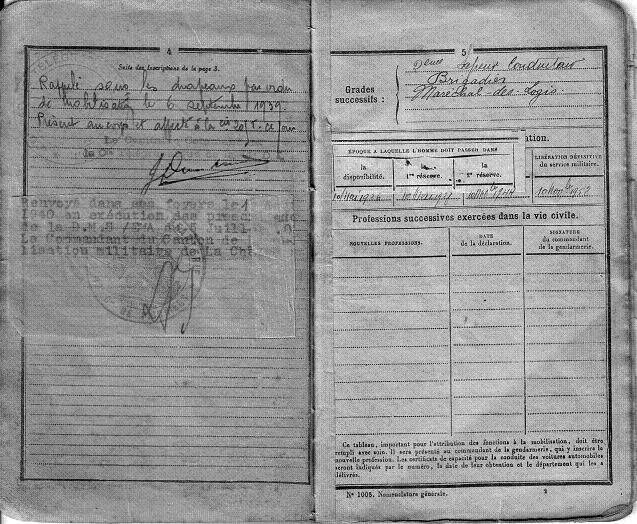 4
Suite des inscriptions de la page 3.
Rappelé sous les drapeaux par ordre
de mobilisation le 6 septembre 1939.
Présent au corps et affecté à la cie ce jour
Renvoyé dans ses foyers le
1940 en exécution des
de la D.M.S /EMA du 5 Juil
Le Commandant du Canton de
lisation militaire de La Châ
5
Grades
successifs :
2ème Sapeur Conducteur
Brigadier
Maréchal-des-Logis
ation.
ÉPOQUE A LAQUELLE L'HOMME DOIT PASSER DANS
la
disponibilité.
la
1re réserve.
la
2e réserve.
LIBÉRATION DÉFINITIVE
du service militaire.
10 Nov bre 1952
Professions successives exercées dans la vie civile.
NOUVELLES PROFESSIONS.
DATE
de la déclaration.
SIGNATURE
du commandant
de la gendarmerie.
Ce tableau, important pour l'attribution des fonctions à la mobilisation, doit être
rempli avec soin. Il sera présenté au commandant de la gendarmerie, qui y inscrira la
nouvelle profession. Les certificats de capacité pour la conduite des voitures automobiles
seront indiqués par le numéro, la date de leur obtention et le département qui les a
délivrés.
N° 1005. Nomenclature générale.
2